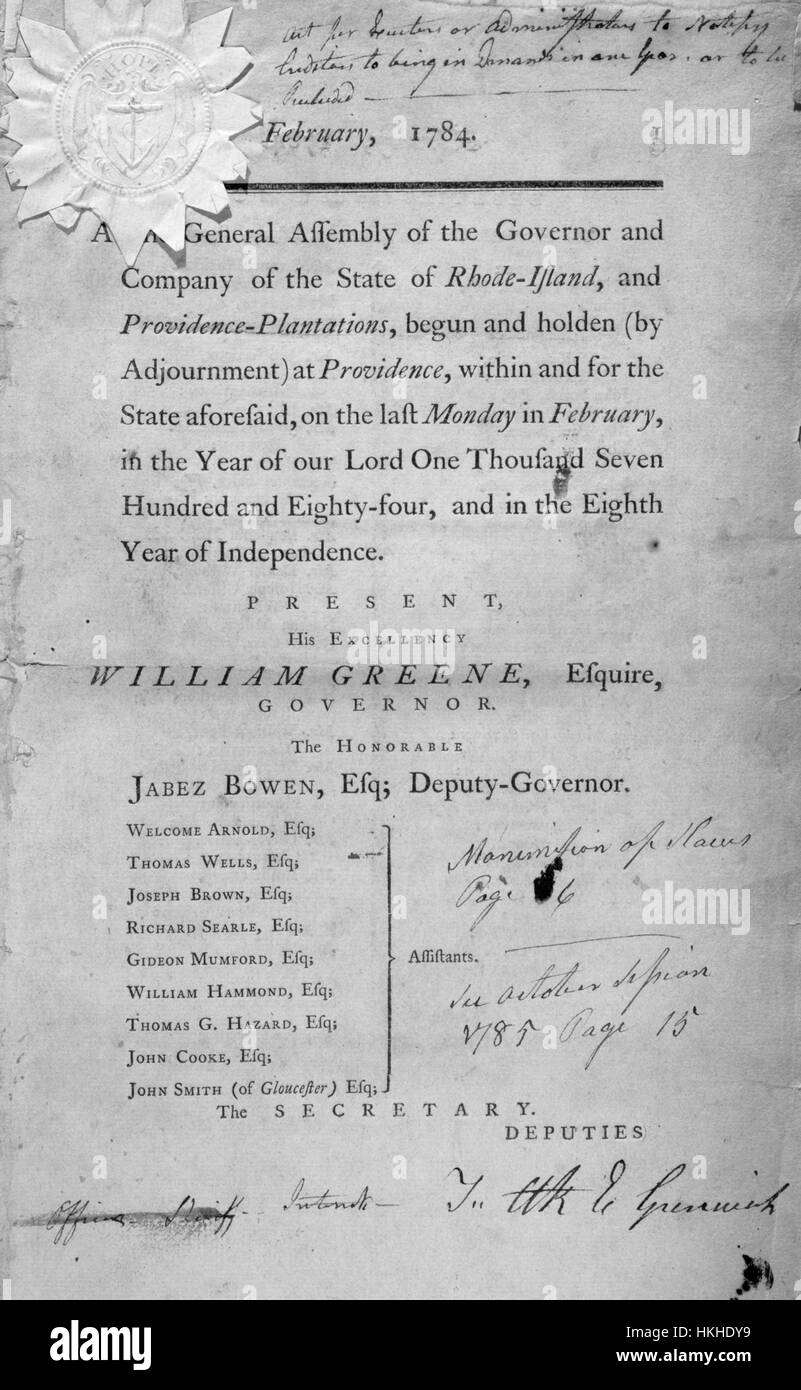 Act for Executors or Administrators to Notify
Creditors to bring in Demands in one Year. or to be
Precluded
HOPE
February, 1784.
General Aſſembly of the Governor and
Company of the State of Rhode-Iſland, and
Providence-Plantations, begun and holden (by
Adjournment) at Providence, within and for the
State aforeſaid, on the laſt Monday in February,
in the Year of our Lord One Thouſand Seven
Hundred and Eighty-four, and in the Eighth
Year of Independence.
PRESENT,
His EXCELLENCY
WILLIAM GREENE, Eſquire,
GOVERNOR.
The HONORABLE
JABEZ BOWEN, Eſq; Deputy-Governor.
WELCOME ARNOLD, Eſq;
THOMAS WELLS, Eſq;
JOSEPH BROWN, Eſq;
RICHARD SEARLE, Eſq;
GIDEON MUMFORD, Eſq;
WILLIAM HAMMOND, Eſq;
THOMAS G. HAZARD, Eſq;
JOHN COOKE, Eſq;
JOHN SMITH (of Glouceſter) Eſq;
Aſſiſtants.
Manumission of Slaves
Page 6
See October Session
1785 Page 15
The SECRETARY.
DEPUTIES
E Greenwich
alamy
alamy stock photo
Image ID: HKHDY9
www.alamy.com